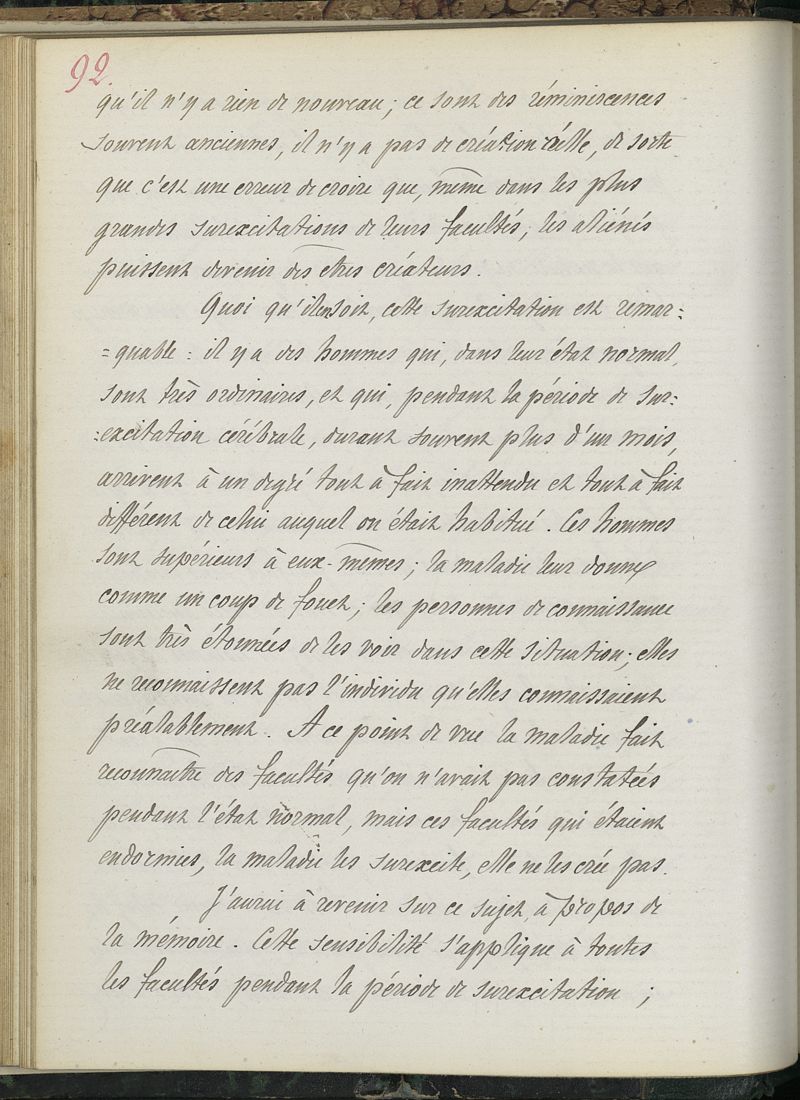 92.
qu'il n'y a rien de nouveau ; ce sont des réminiscences
souvent anciennes, il n'y a pas de création réelle, de sorte
que c'est une erreur de croire que, même dans les plus
grandes surexcitations de leurs facultés, les aliénés
puissent devenir des êtres créateurs.
Quoi qu'il en soit, cette surexcitation est remar=
=quable : il y a des hommes qui, dans leur état normal,
sont très ordinaires, et qui, pendant la période de sur=
=excitation cérébrale, durant souvent plus d'un mois,
arrivent à un degré tout à fait inattendu et tout à fait
différent de celui auquel on était habitué. Ces hommes
sont supérieurs à eux-mêmes ; la maladie leur donne
comme un coup de fouet ; les personnes de connaissance
sont très étonnées de les voir dans cette situation ; elles
ne reconnaissent pas l'individu qu'elles connaissaient
préalablement. A ce point de vue la maladie fait
reconnaître des facultés qu'on n'avait pas constatées
pendant l'état normal, mais ces facultés qui étaient
endormies, la maladie les surexcite, elle ne les crée pas.
J'aurai à revenir sur ce sujet, à propos de
la mémoire. Cette sensibilité s'applique à toutes
les facultés pendant la période de surexcitation ;